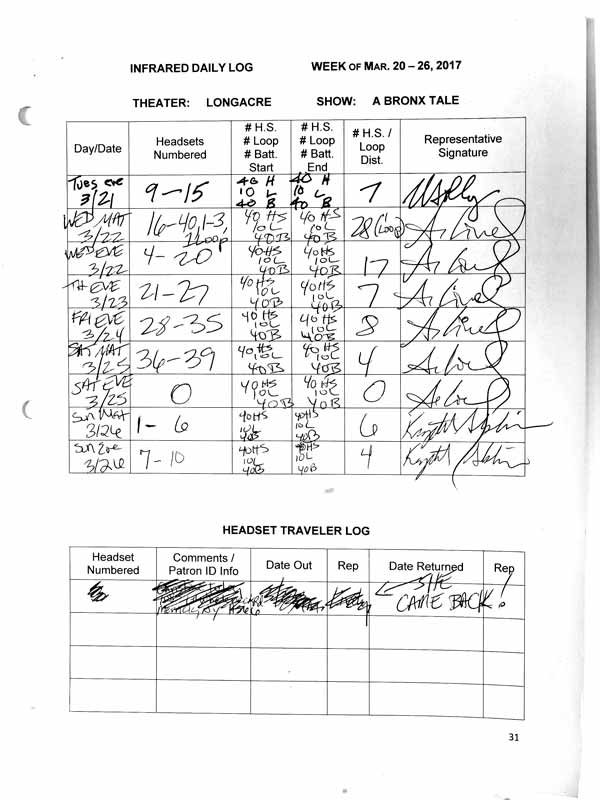 INFRARED DAILY LOG WEEK OF MAR. 20 – 26, 2017
THEATER: LONGACRE SHOW: A BRONX TALE
Day/Date Headsets Numbered # H.S. # Loop # Batt. Start # H.S. # Loop # Batt. End # H.S. / Loop Dist. Representative Signature
Tues eve 3/21 9-15 40 H 10 L 40 B 40 H 10 L 40 B 7
WED MAT 3/22 16-40, 1-3, 1 Loop 40 HS 10L 40B 40 HS 10L 40B 28 (1 Loop)
WED EVE 3/22 4-20 40HS 10L 40B 40HS 10L 40B 17
TH EVE 3/23 21-27 40HS 10L 40B 40HS 10L 40B 7
FRI EVE 3/24 28-35 40HS 10L 40B 40HS 10L 40B 8
SAT MAT 3/25 36-39 40HS 10L 40B 40HS 10L 40B 4
SAT EVE 3/25 0 40HS 10L 40B 40HS 10L 40B 0
Sun Mat 3/26 1-6 40HS 10L 40B 40HS 10L 40B 6
Sun Eve 3/26 7-10 40HS 10L 40B 40HS 10L 40B 4
HEADSET TRAVELER LOG
Headset Numbered Comments / Patron ID Info Date Out Rep Date Returned Rep
SHE
CAME BACK!
31